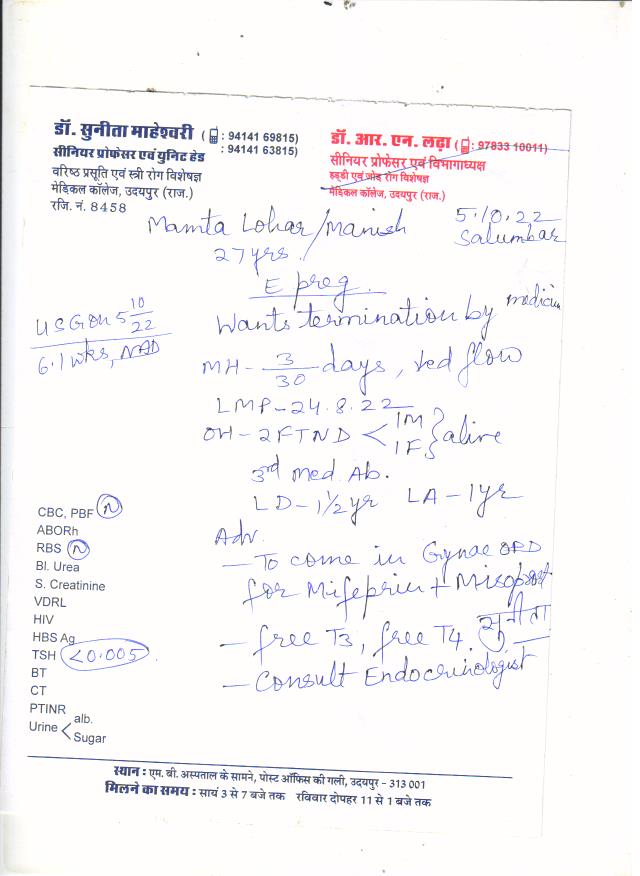 डॉ. सुनीता माहेश्वरी ( : 94141 69815)
: 94141 63815)
सीनियर प्रोफेसर एवं युनिट हेड
वरिष्ठ प्रसूति एवं स्त्री रोग विशेषज्ञ
मेडिकल कॉलेज, उदयपुर (राज.)
रजि. नं. 8458
डॉ. आर. एन. लढ़ा ( : 97833 10011)
सीनियर प्रोफेसर एवं विभागाध्यक्ष
हड्डी एवं जोड़ रोग विशेषज्ञ
मेडिकल कॉलेज, उदयपुर (राज.)
Mamta Lohar/Manish
27 yrs.
5.10.22
Salumbar
E preg.
USG on 5 10/22
6.1 wks, NAD
Wants termination by medicine
MH - 3/30 days, red flow
LMP - 24.8.22
OH - 2FTND < 1M 1F } alive
3rd Med. Ab.
LD - 1½ yr LA - 1yr
Adv.
- To come in Gynae OPD
for Mifeprin + Misoprost
- free T3, free T4. सुनीता
- Consult Endocrinologist
CBC, PBF N
ABORh
RBS N
Bl. Urea
S. Creatinine
VDRL
HIV
HBS Ag
TSH <0.005
BT
CT
PTINR
Urine < alb.
Sugar
स्थान : एम. बी. अस्पताल के सामने, पोस्ट ऑफिस की गली, उदयपुर - 313 001
मिलने का समय : सायं 3 से 7 बजे तक रविवार दोपहर 11 से 1 बजे तक